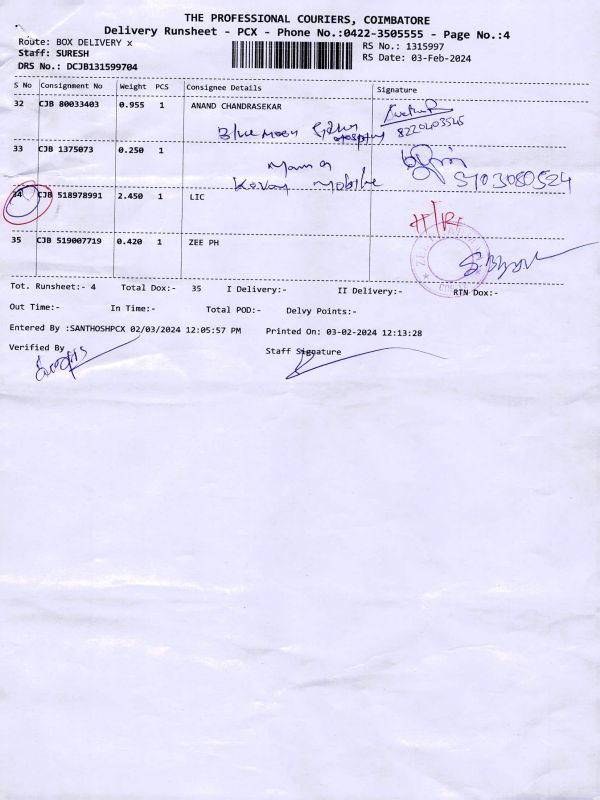 THE PROFESSIONAL COURIERS, COIMBATORE
Delivery Runsheet - PCX - Phone No.:0422-3505555 - Page No.:4
Route: BOX DELIVERY x
RS No.: 1315997
Staff: SURESH
RS Date: 03-Feb-2024
DRS No.: DCJB131599704
S No Consignment No Weight PCS Consignee Details Signature
32 CJB 80033403 0.955 1 ANAND CHANDRASEKAR
Blue moon
8220403545
33 CJB 1375073 0.250 1
Kovai mobile
34 CJB 518978991 2.450 1 LIC
35 CJB 519007719 0.420 1 ZEE PH
Tot. Runsheet:- 4 Total Dox:- 35 I Delivery:- II Delivery:- RTN Dox:-
Out Time:- In Time:- Total POD:- Delvy Points:-
Entered By :SANTHOSHPCX 02/03/2024 12:05:57 PM Printed On: 03-02-2024 12:13:28
Verified By
Staff Signature